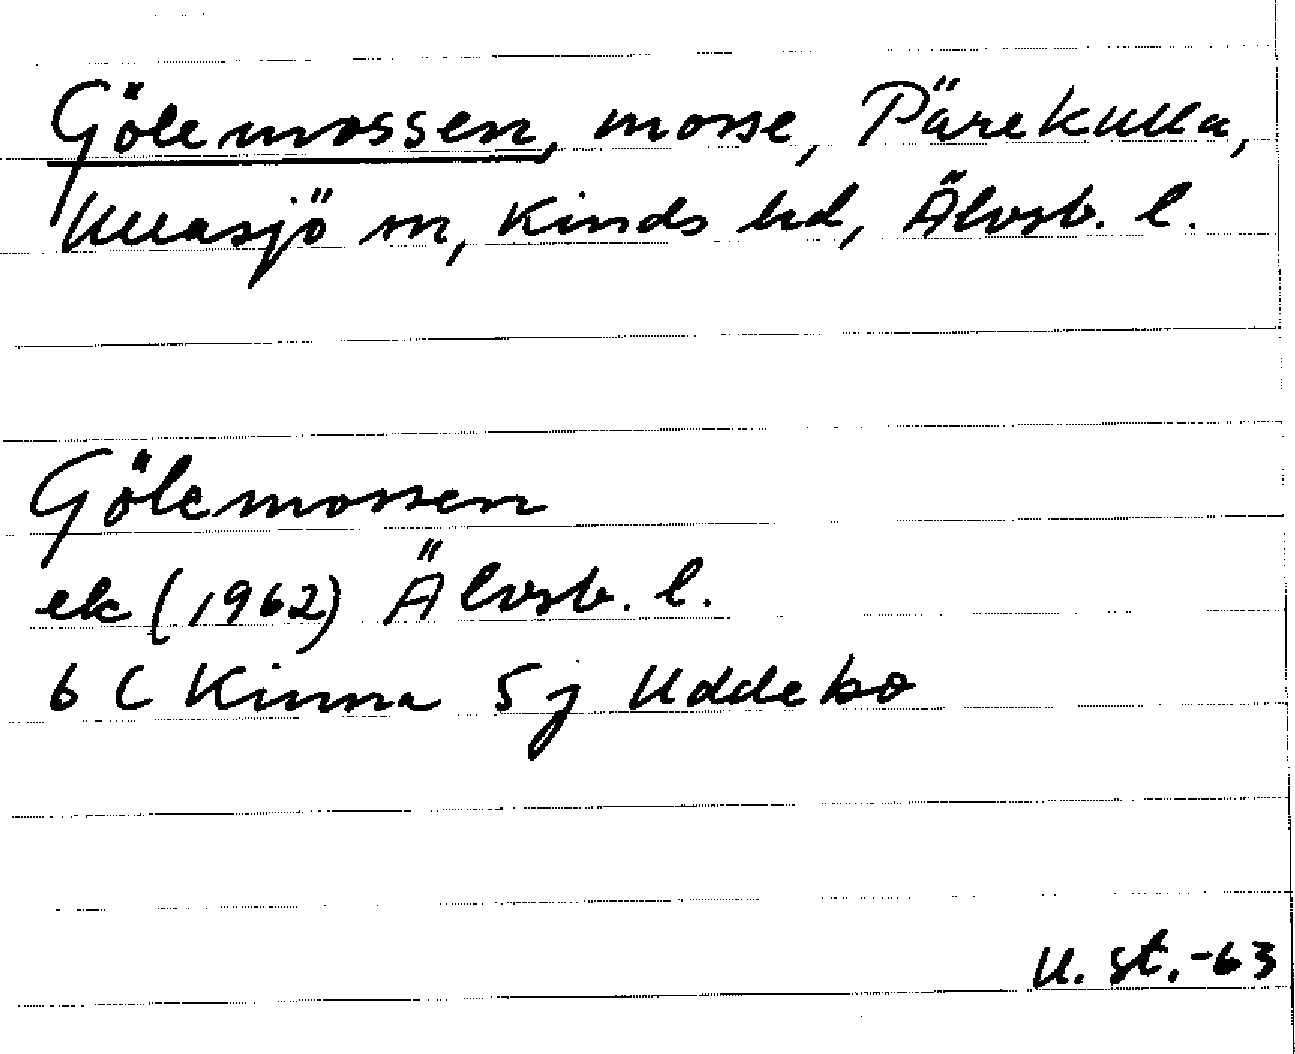 Gölemossen, mosse, Pärekulla,
Ullasjö sn, Kinds hd, Älvsb. l.
Gölemossen
ek (1962) Älvsb. l.
6 C Kinna 5 j Uddebo
U. St. -63